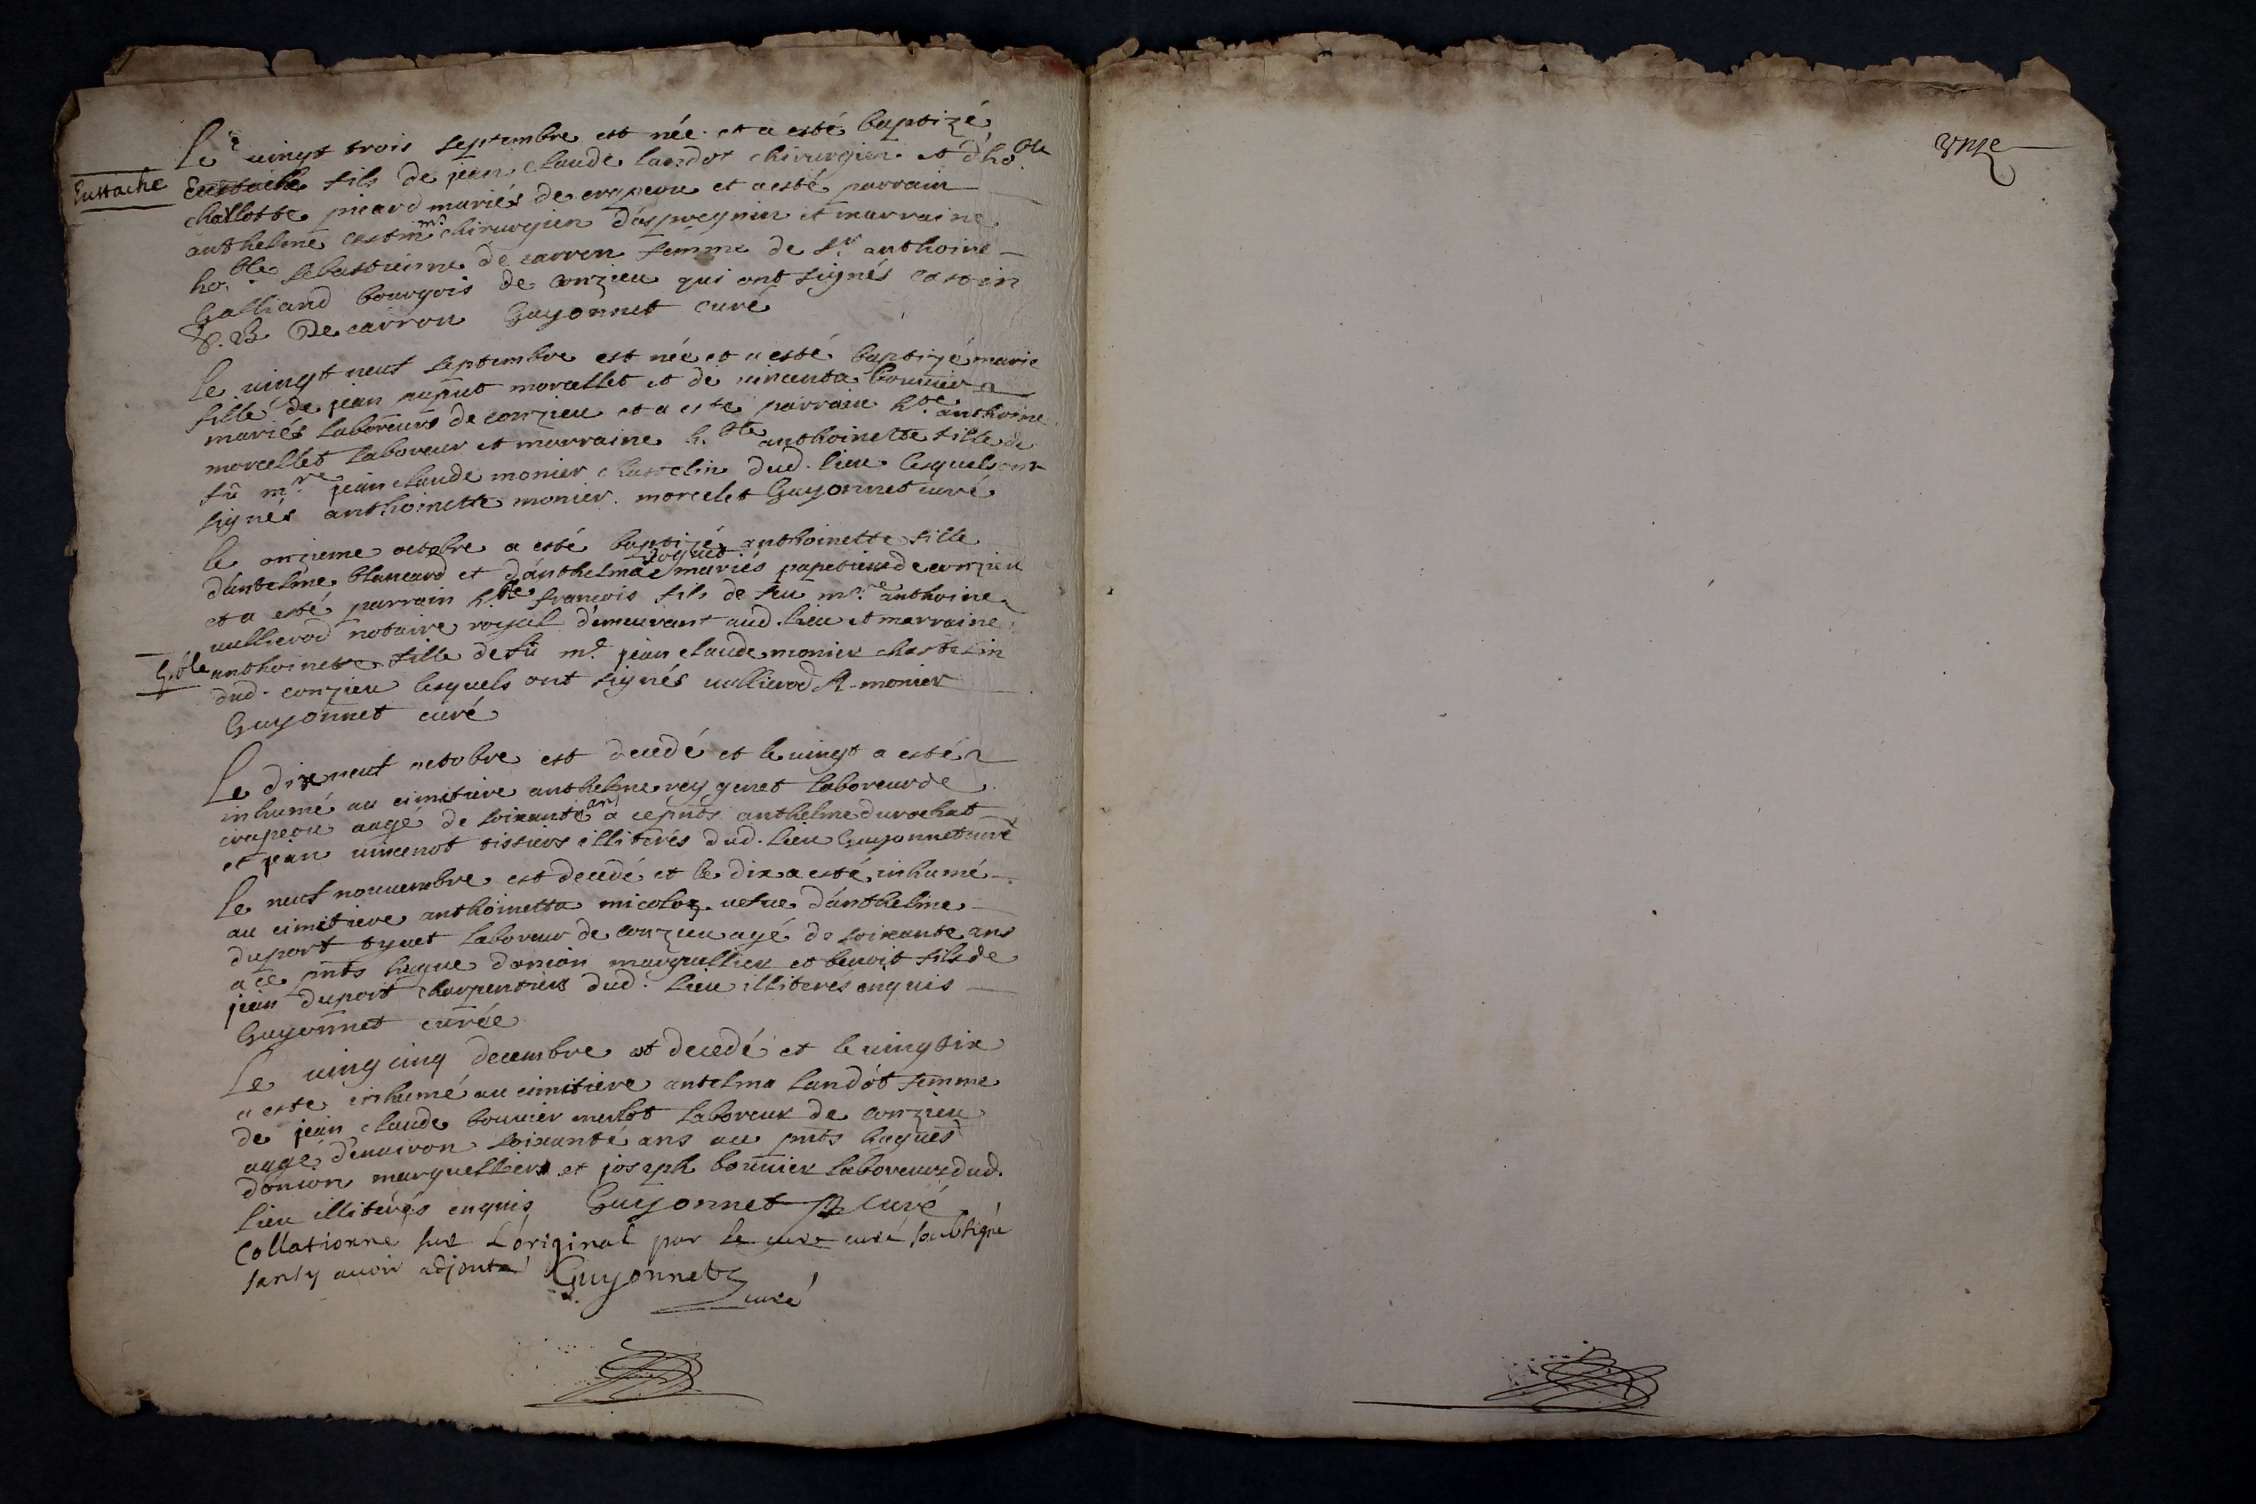 Le vingt trois septembre est née et a esté baptizé
Eustache
Eustache fils de jean claude landot chirurgien et d'ho.ble
charlotte picard mariés de crapeou et a esté parrain
anthelme castin m.e chirurgien d'aspregnin et marraine
ho.ble sebastienne de carron femme de s.r anthoine
Galliand bourgois de conzieu qui ont signés castin
S. B De carron Guyonnet curé
le vingt neuf septembre est née et a esté baptizé marie
fille de jean puput morcellet et de vincenta bouvier
mariés laboreurs de conzieu et a este parrain h.ble anthoine
morcellet laboreur et marraine h.ble anthoinette fille de
fû m.re jean claude monier chastelin dud. lieu lesquels ont
signés anthoinette monier. morcelet Guyonnet curé
le onzieme octobre a esté baptizé anthoinette fille
d'antelme blancard et d'anthelma mariés papetiers de conzieu
et a esté parrain h.ble françois fils de feu m.re anthoine
vullierod notaire royal demeurant aud. lieu et marraine
h.ble anthoinette fille de fû m.e jean claude monier chastelin
dud. conzieu lesquels ont signés vullierod A. monier
Guyonnet curé
Le dixneuf octobre est decedé et le vingt a esté
inhumé au cimitiere anthelme reygenet laboreur de
crapeou aage de soixante ans a ce pnts anthelme durochat
et jean vincenot tissiers illiterés dud. lieu Guyonnet curé
le neuf nouvembre est decedé et le dix a esté inhumé
au cimitiere anthoinetta micoloz vefue d'anthelme
duport tyuet laboreur de conzieu agé de soixante ans
a ce pnts hugue donion marguellier et benoit fils de
jean duport charpentier dud. lieu illiteres enquis
Guyonnet curée
Le ving cinq decembre est decedé et le ving six
a este inhumé au cimitiere antelma landot femme
de jean claude bouvier merlot laboreur de conzieu
aagé d'enuiron soixante ans au pnts hugues
donion marguellier et joseph bouvier laboreurs dud.
lieu illiterés enquis Guyonnet curé
Collationne sur L'original par le curé curé soubsigné
sans y avoir adjouté Guyonnet
curé
unze